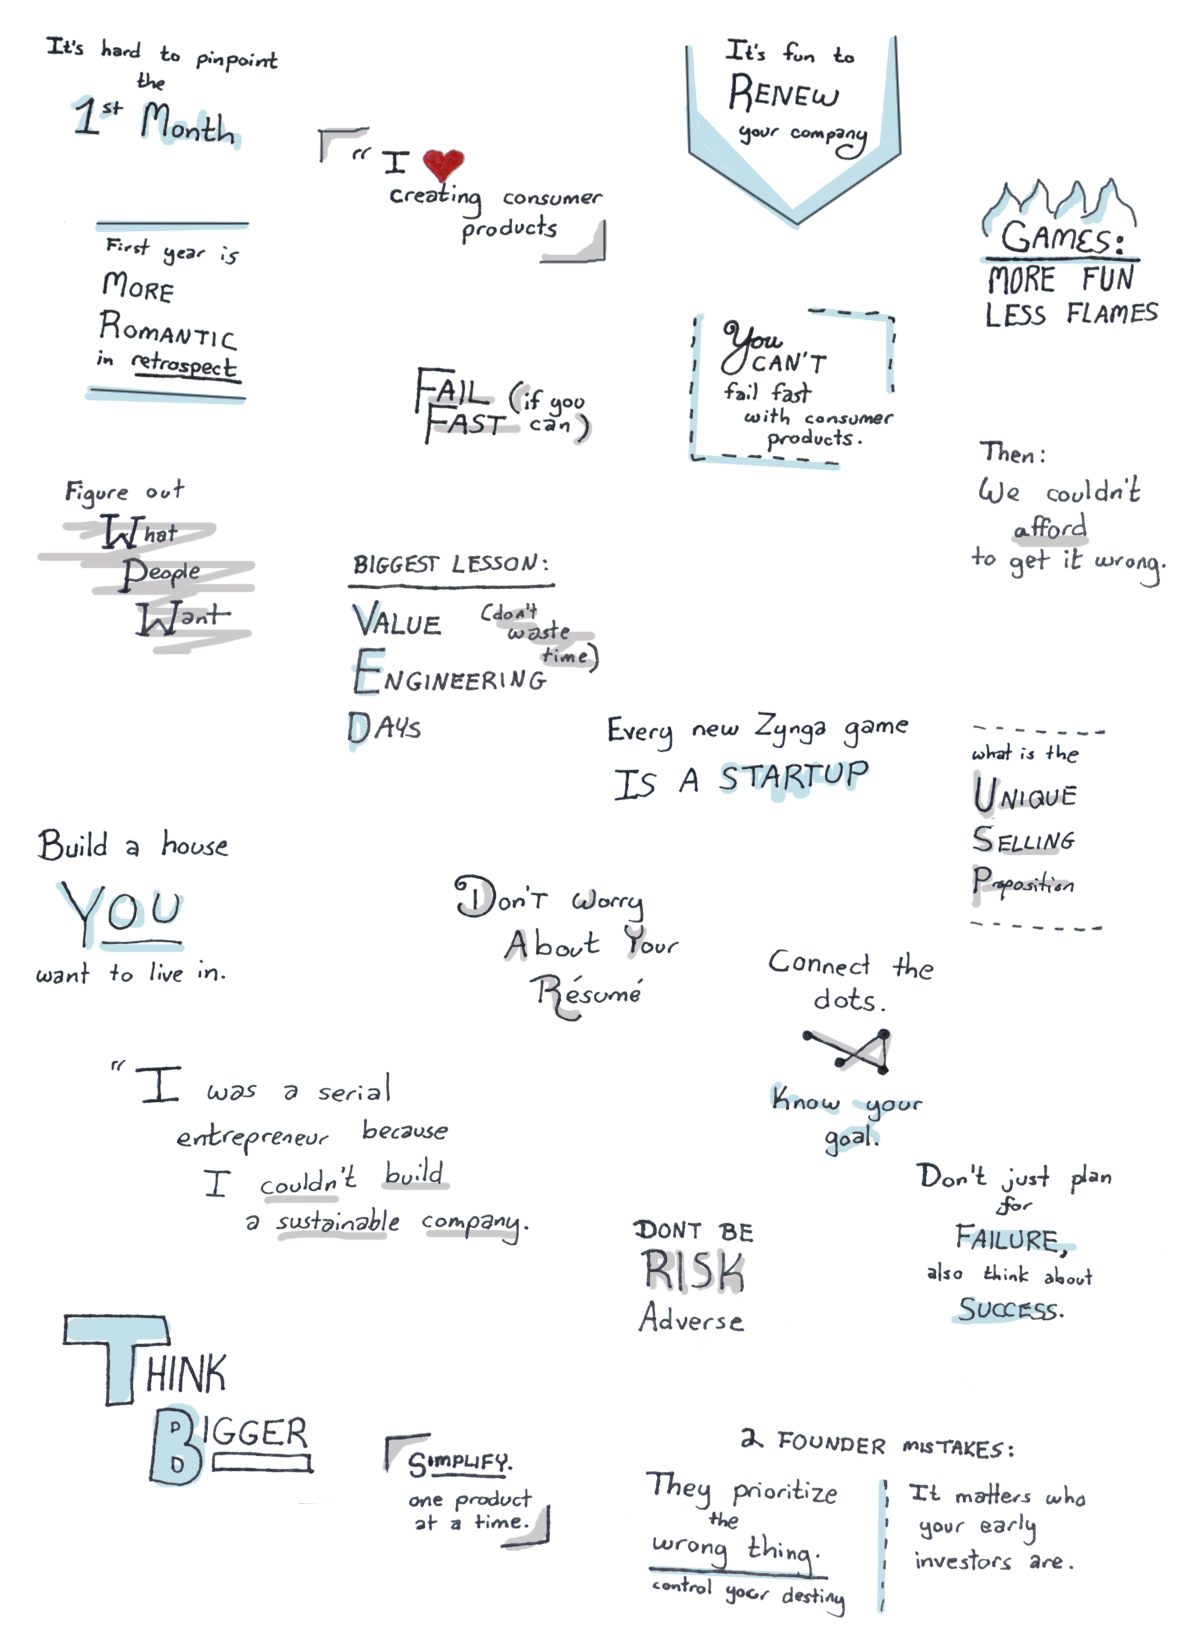 It's hard to pinpoint
the
1st Month
"I
creating consumer
products
It's fun to
RENEW
your company
GAMES:
MORE FUN
LESS FLAMES
First year is
MORE
ROMANTIC
in retrospect
FAIL (if you
FAST can)
You
CAN'T
fail fast
with consumer
products.
Then:
We couldn't
afford
to get it wrong.
Figure out
What
People
Want
BIGGEST LESSON:
VALUE (don't
waste
time)
ENGINEERING
DAYS
Every new Zynga game
IS A STARTUP
what is the
UNIQUE
SELLING
Proposition
Build a house
YOU
want to live in.
Don't Worry
About Your
Résumé
Connect the
dots.
Know your
goal.
"I was a serial
entrepreneur because
I couldn't build
a sustainable company.
DONT BE
RISK
Adverse
Don't just plan
for
FAILURE,
also think about
SUCCESS.
THINK
BIGGER
SIMPLIFY.
one product
at a time.
2 FOUNDER MISTAKES:
They prioritize
the
wrong thing.
control your destiny
It matters who
your early
investors are.